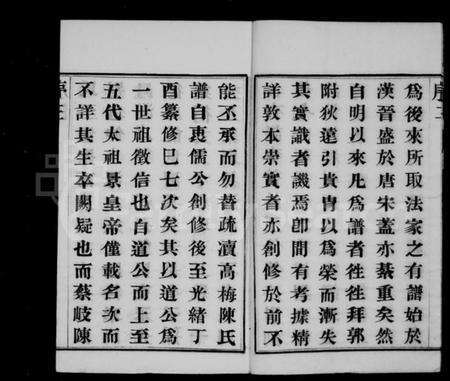 序三
為後來所取法家之有譜始於
漢晉盛於唐宋蓋亦綦重矣然
自明以來凡為譜者徃徃拜郭
附狄遠引貴冑以為榮而漸失
其實識者譏焉卽間有考據精
詳敦本崇實者亦創修於前不
能丕承而勿替疏瀆高梅陳氏
譜自衷儒公創修後至光緒丁
酉纂修巳七次矣其以道公為
一世祖徵信也自道公而上至
五代太祖景皇帝僅載名次而
不詳其生卒闕疑也而蔡岐陳
序三